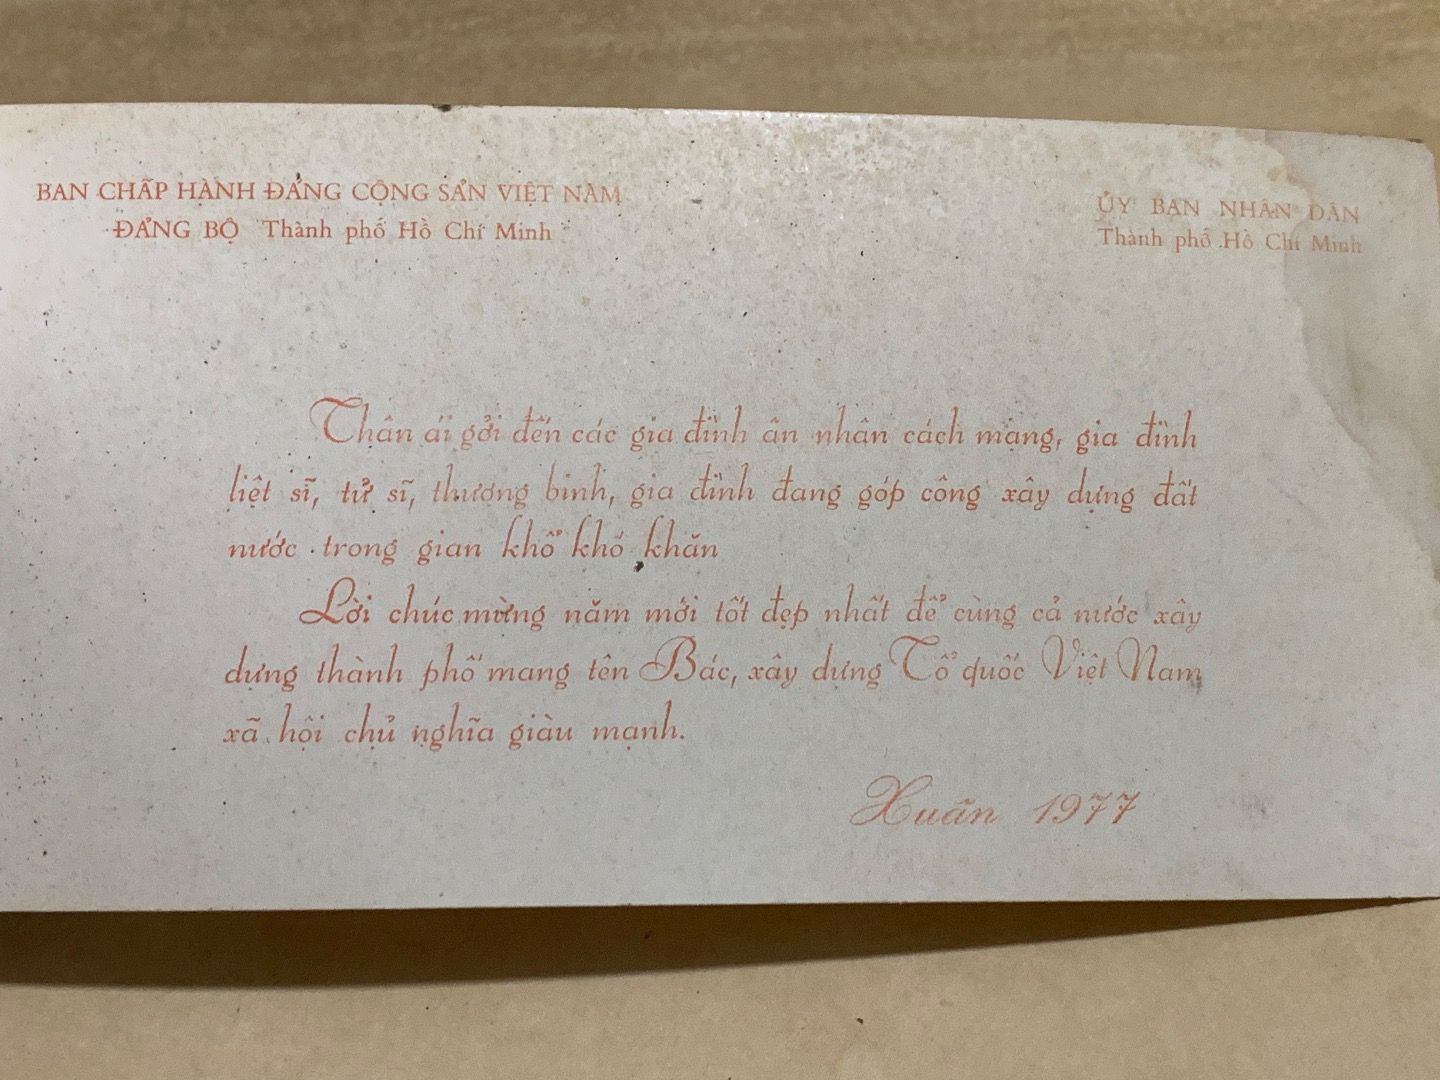 BAN CHẤP HÀNH ĐẢNG CỘNG SẢN VIỆT NAM
ĐẢNG BỘ Thành phố Hồ Chí Minh
ỦY BAN NHÂN DÂN
Thành phố Hồ Chí Minh
Thân ái gởi đến các gia đình ân nhân cách mạng, gia đình
liệt sĩ, tử sĩ, thương binh, gia đình đang góp công xây dựng đất
nước trong gian khổ khó khăn
Lời chúc mừng năm mới tốt đẹp nhất để cùng cả nước xây
dựng thành phố mang tên Bác, xây dựng Tổ quốc Việt Nam
xã hội chủ nghĩa giàu mạnh.
Xuân 1977